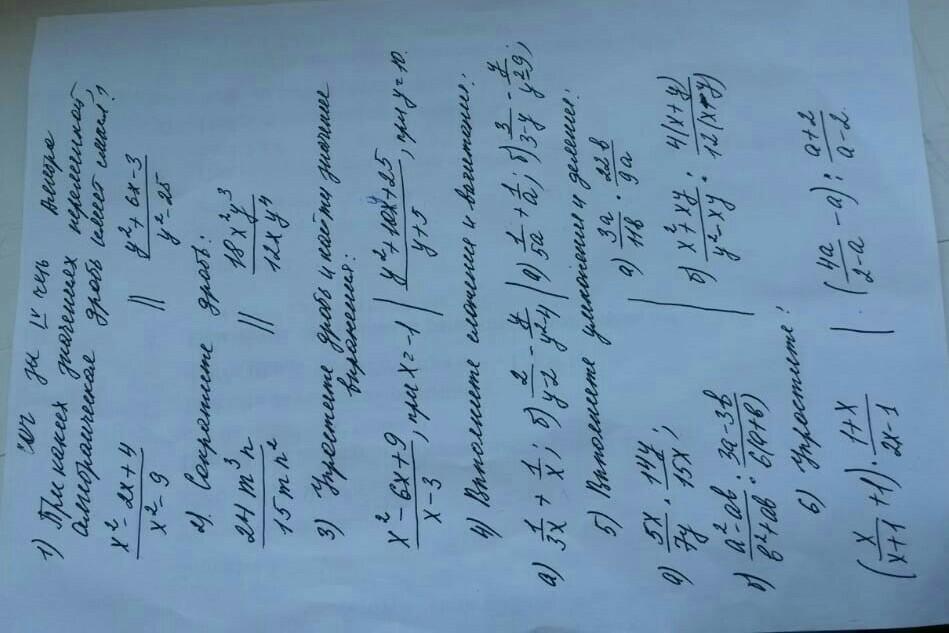 1) При каких значениях переменной
алгебраическая дробь имеет смысл?
x² - 2x + 4 / x² - 9 || y² + 6x - 3 / y² - 25
2) Сократите дробь:
24 m³ n / 15 m n² || 18 x² y³ / 12 x y⁴
3) Упростите дробь и найти значение
выражения:
x² - 6x + 9 / x - 3, при x = -1 | y² + 10y + 25 / y + 5, при y = 10.
4) Выполните сложение и вычитание:
а) 1/3x + 1/x; б) 2/y-2 - y/y²-4 | а) 1/5a + 1/a; б) 3/3-y - y/y²-9;
5) Выполните умножение и деление:
а) 5x/7y · 14y/15x; | а) 3a/11b · 22b/9a
б) a²-ab/b²+ab : 3a-3b/6(a+b) | б) x²+xy/y²-xy : 4(x+y)/12(x-y)
6) Упростите:
(x/x+1 + 1) · 1+x/2x-1 | (4a/2-a - a) : a+2/a-2